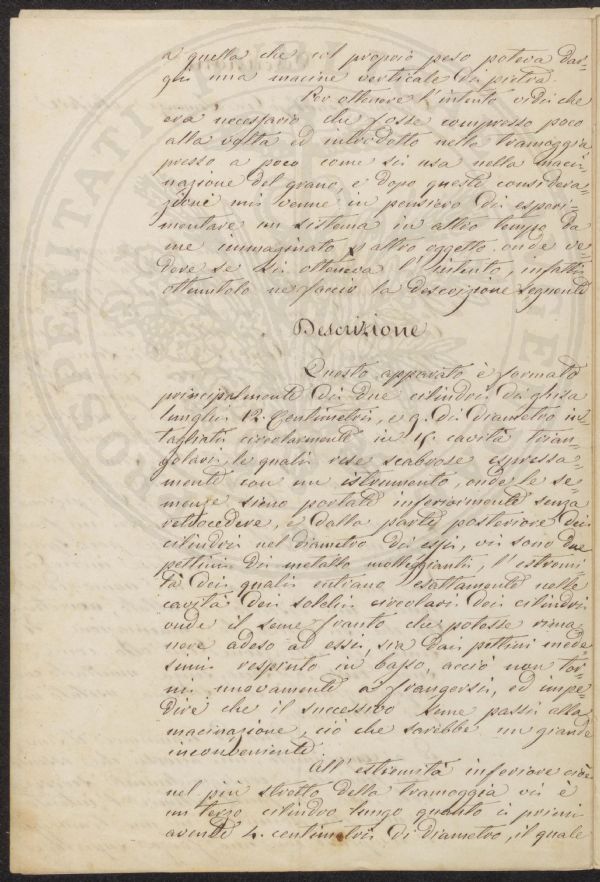 a quella che col proprio peso poteva dar-
gli una macine verticale di pietra.
Per ottenere l'intento vidi che
era necessario che fosse compresso poco
alla volta ed introdotto nella tramoggia
presso a poco come si usa nella maci-
nazione del grano, e dopo queste considera-
zioni mi venne in pensiero di esperi-
mentare un sistema in altro tempo da
me immaginato p altro oggetto onde ve-
dere se si otteneva l'intento, infatti
ottenutolo ne faccio la descrizione seguente
Descrizione
Questo apparato è formato
principalmente di due cilindri di ghisa
lunghi 12. Centimetri, e 9. di diametro in-
tagliati circolarmente in 15. cavità trian-
golari, le quali rese scabrose espressa-
mente con un istrumento, onde le se-
menze sieno portate inferiormente senza
retrocedere, e dalla parte posteriore dei
cilindri nel diametro di essi, vi sono due
pettini di metallo molleggianti, l'estremi-
tà dei quali entrano esattamente nelle
cavità dei solchi circolari dei cilindri
onde il seme franto che potesse rima-
nere adeso ad essi, sia dai pettini mede-
simi respinto in basso, acciò non tor-
ni nuovamente a frangersi, ed impe-
dire che il successivo seme passi alla
macinazione, ciò che sarebbe un grande
inconveniente.
All'estremità inferiore cioè
nel più stretto della tramoggia vi è
un terzo cilindro lungo quanto i primi
avente 4. centimetri di diametro, il quale
PROSPERITATI